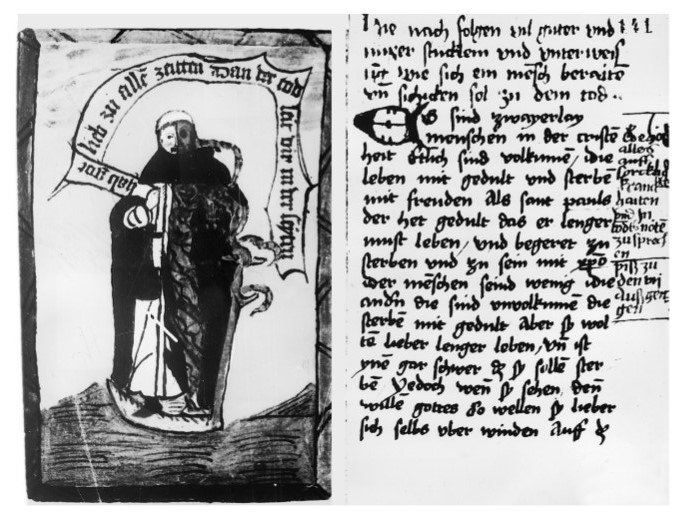 hab got
lieb zu allē zeitten Dan der tod
Hie nach folgen vil guter vnd 141
vnd vnterweis
wie sich ein mēsch beraite
vn̄ schicken sol zu dem tod
Es sind zwayerlay
menschen in der cristē
heit Etlich sind volkumē / die
leben mit gedult vnd sterbē
mit freuden Als sant pauls
der het gedult das er lenger
must leben / vnd begeret zu
sterben vnd zu sein mit xp̄o
der mēschen seind wenig / die
andn̄ die sind vnvolkumē die
sterbē mit gedult Aber sy wol
tē lieber lenger leben / vn̄ ist
ynē gar schwer dz sy sollē ster
bē Yedoch wen̄ sy sehen den̄
willē gottes So wellen sy lieber
sich selbs vber winden Auf dz
alles
auff
haiten
vnd in
todtnoten
zu sprech
en
biß zu